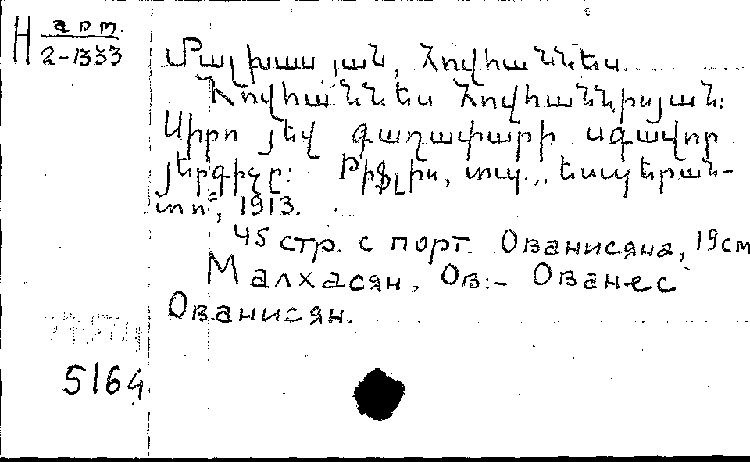 Н арт.
2-1333
Մալխասյան, Հովհաննես
Հովհաննես Հովհաննիսյան։
Սիրո յեվ գաղափարի սգավոր
յերգիչը։ Թիֆլիս, տպ. „Եսպերան-
տո", 1913.
45 стр. с порт. Ованисяна, 19см
Малхасян, Ов.- Ованес
Ованисян.
5164.